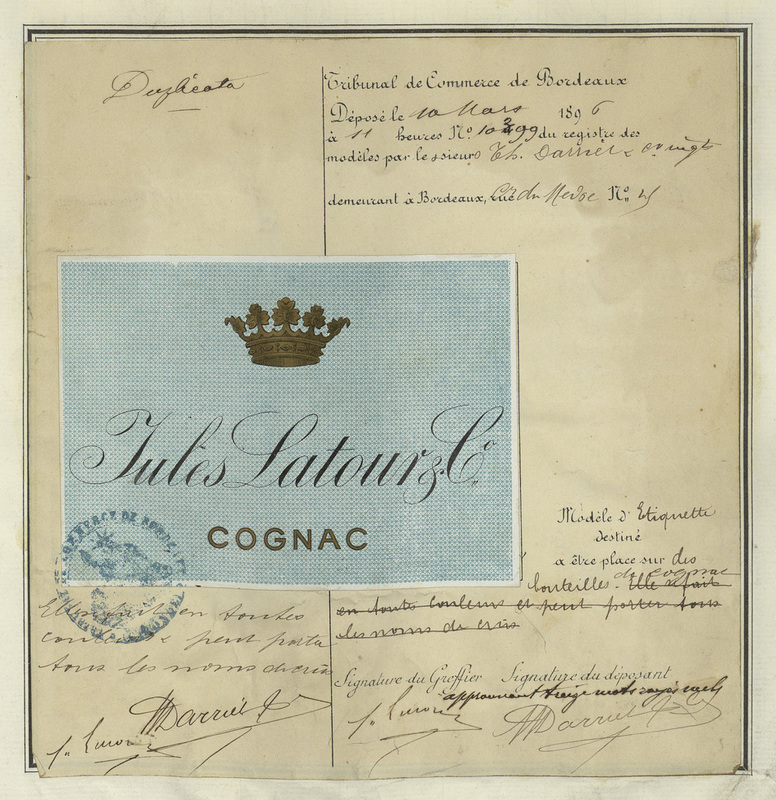 Duplicata
Tribunal de Commerce de Bordeaux
Déposé le 10 Mars 1896
à 11 heures No. du registre des
modèles par le sieur Th. Darriet &
demeurant à Bordeaux, du Médoc No.
Jules Latour & Co.
COGNAC
COMMERCE DE BORDEAUX
Modèle d'Etiquette
destiné
a être placé sur des
bouteilles du cognac Elle se fait
en toutes couleurs et peut porter tous
les noms de crûs
en toutes
couleurs & peut porter
tous les noms de crûs
Signature du Greffier Signature du déposant
approuvant treize mots rayés nuls
Darriet
Darriet